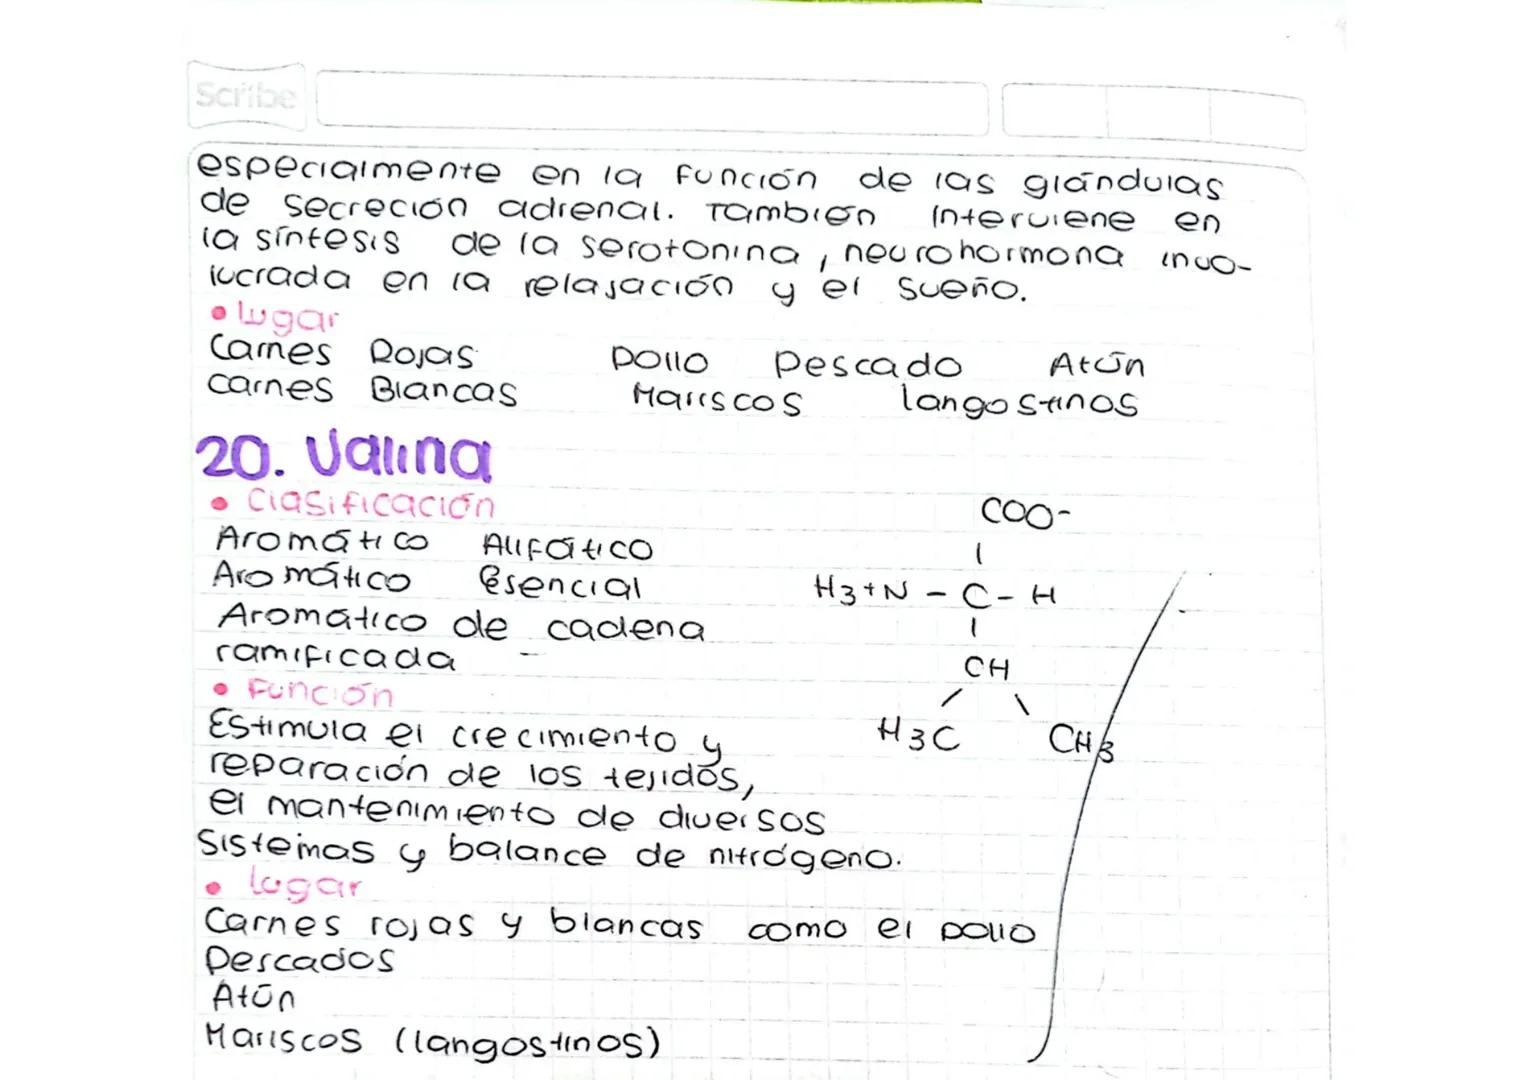 Scribe
especialmente en la función de las glándulas
de secreción adrenal. También interviene en
la síntesis de la serotonina, neurohormona invo-
lucrada en la relajación y el sueño.
• lugar
Carnes Rojas Pollo Pescado Atún
carnes Blancas Mariscos langostinos
20. Valina
• Clasificación
Aromático Alifático
Aromático Esencial
Aromatico de cadena
ramificada
• Función
Estimula el crecimiento y
reparación de los tejidos,
el mantenimiento de diversos
sistemas y balance de nitrógeno.
• lugar
Carnes rojas y blancas como el pollo
Pescados
Atún
Mariscos (langostinos)
COO-
|
H3+N - C - H
|
CH
/ \
H3C CH3